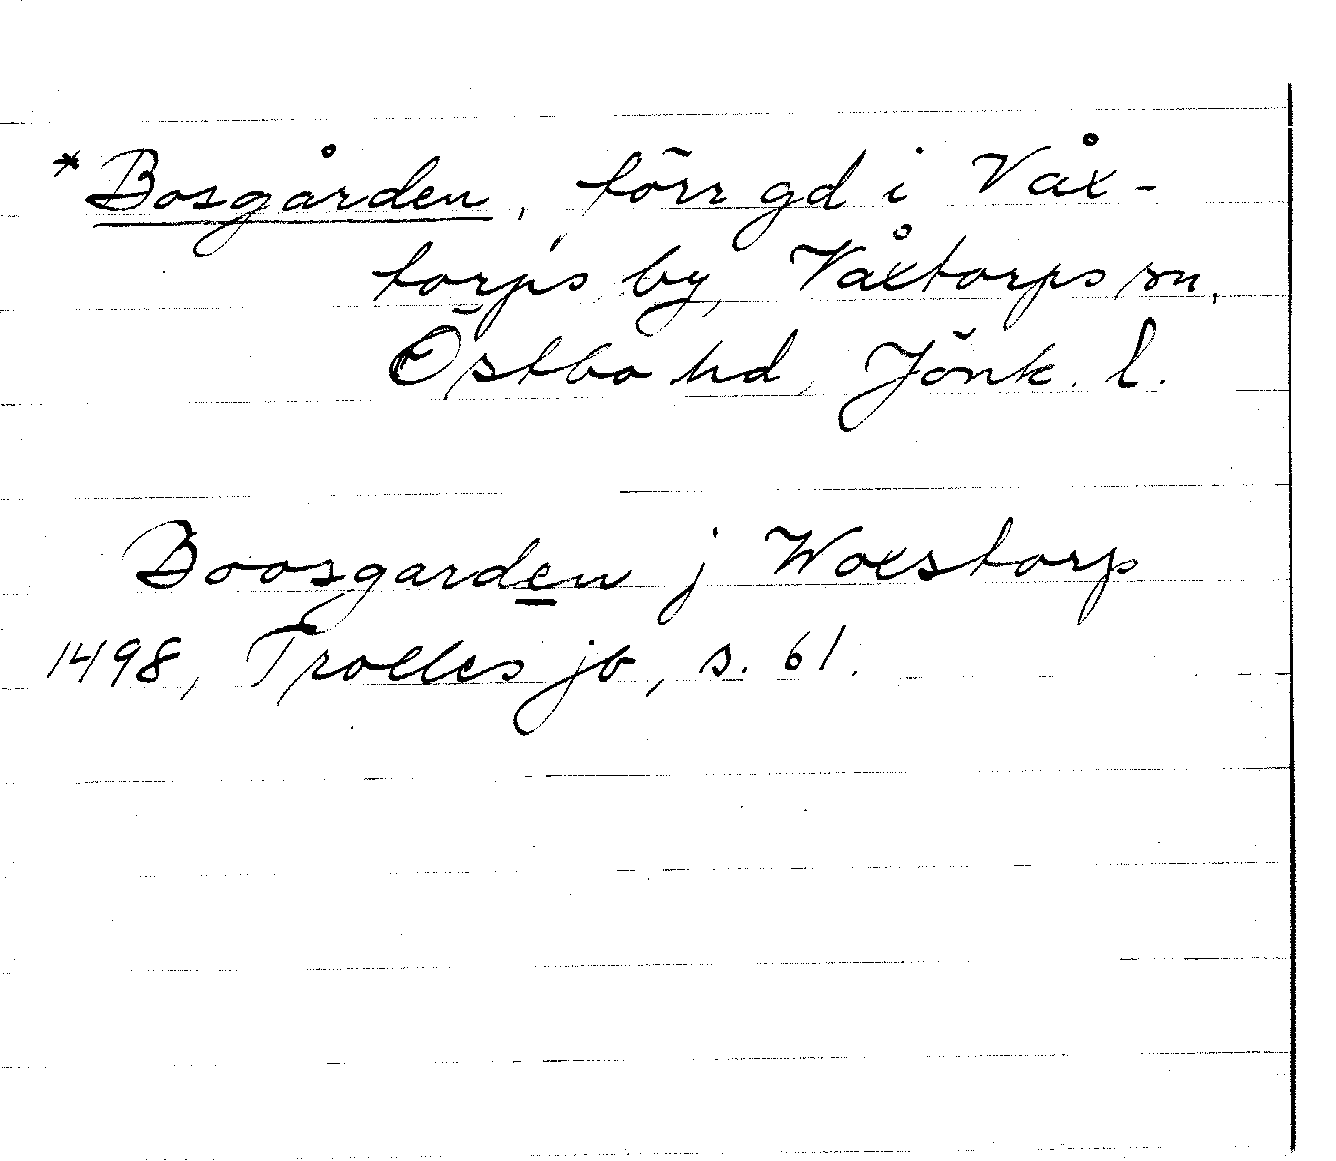 *Bosgården, förr gd i Våx-
torps by, Våxtorps sn,
Östbo hd, Jönk. l.
Boosgarden j Woxstorp
1498, Trolles jb, s. 61.